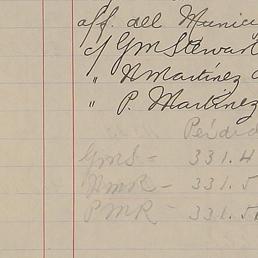 aff. del Munici
c/ GM Stewart
" N Martínez
" P. Martínez
Perdid
GMS - 331.4
NMR - 331.5
PMR - 331.5